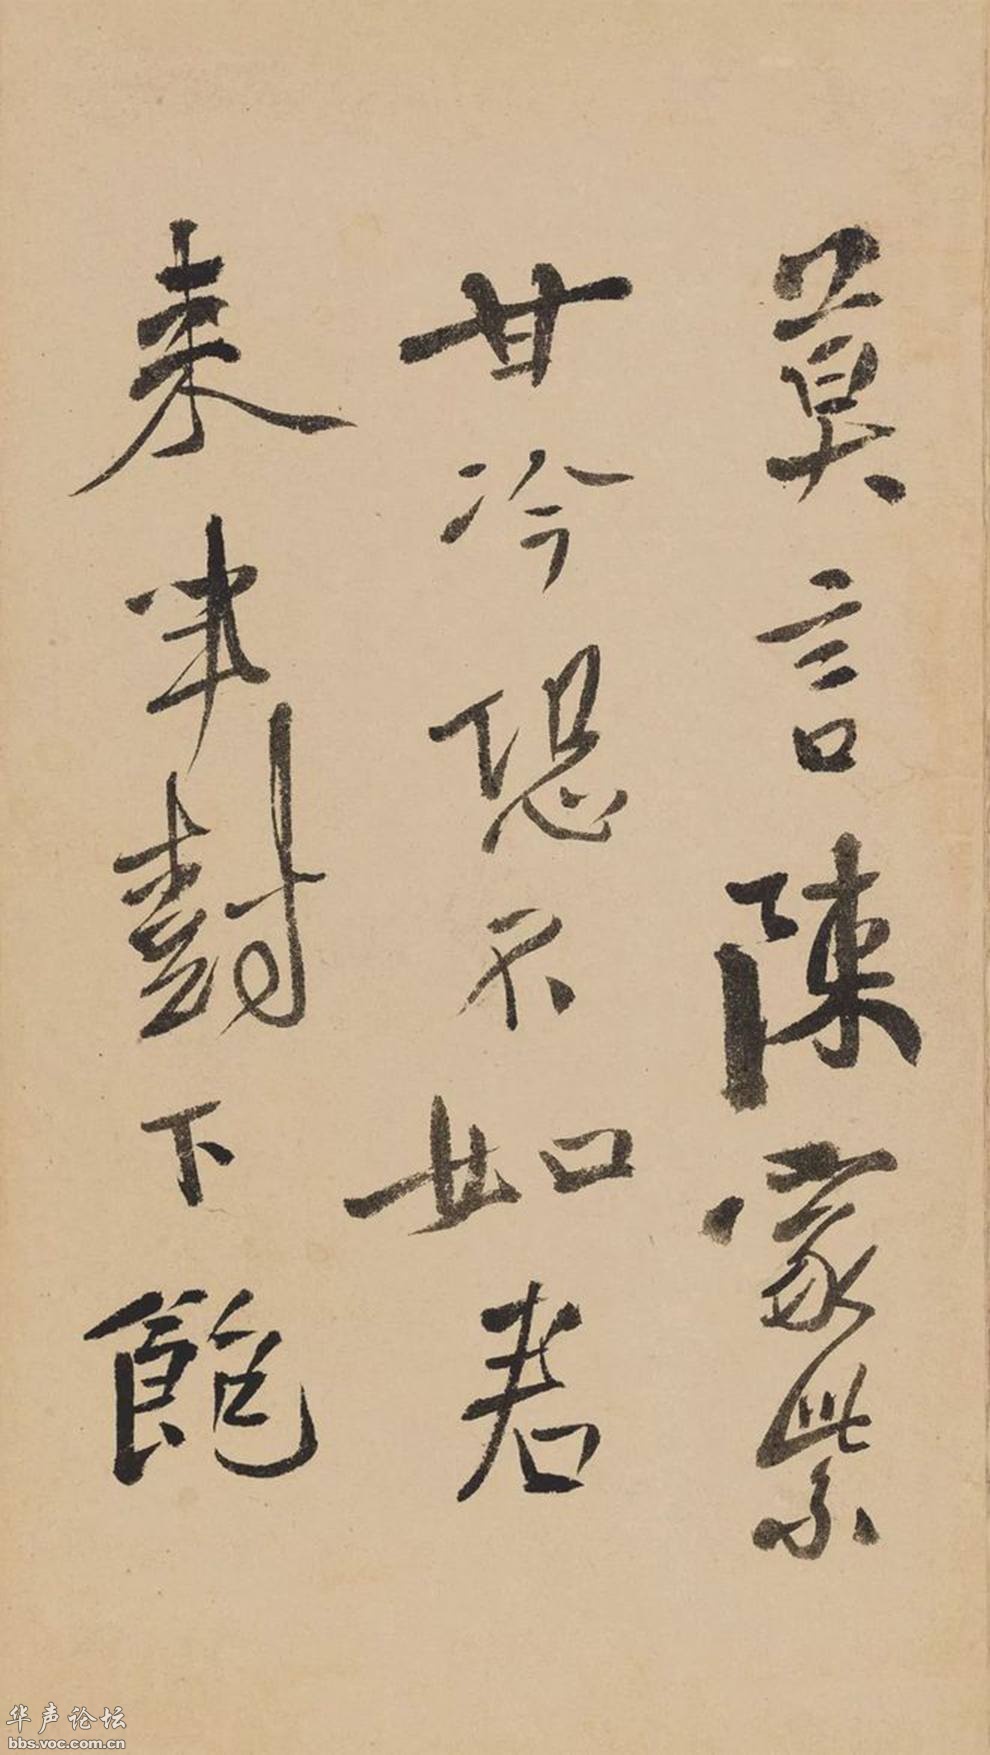 莫言陳家紫
甘冷恐不如君
來下飽
华声论坛
bbs.voc.com.cn